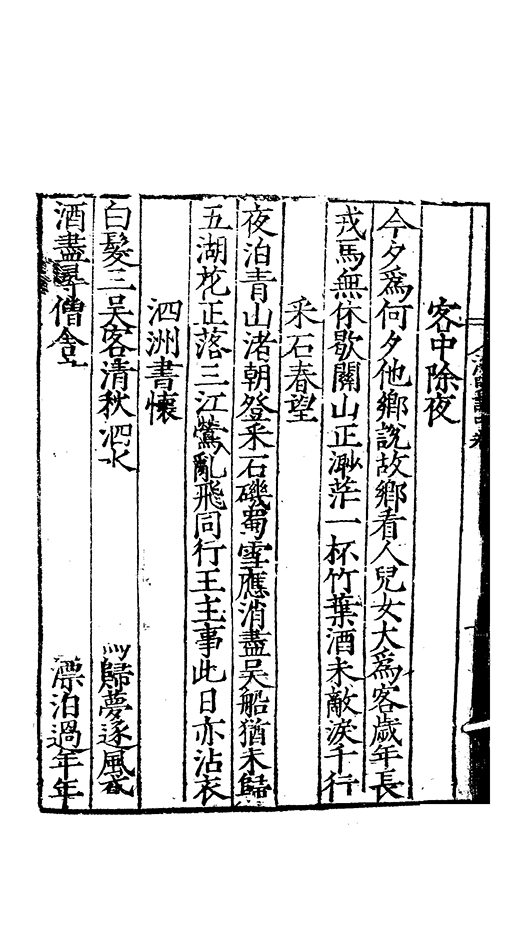 客中除夜
今夕爲何夕他鄉說故鄉看人兒女大爲客歲年長
戎馬無休歇關山正渺茫一杯竹葉酒未敵淚千行
采石春望
夜泊青山渚朝登采石磯蜀雪應消盡吳船猶未歸
五湖花正落三江鶯亂飛同行王主事此日亦沾衣
泗洲書懷
白髮三吳客清秋泗水 歸夢逐風
酒盡尋僧舍 漂泊過年年